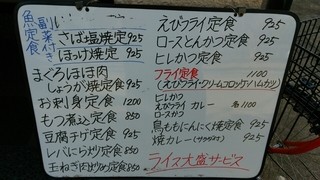 魚定食
副菜付き
さば塩焼定 925
ほっけ焼定 925
まぐろほほ肉
しょうが焼定食 925
お刺身定食 1200
もつ煮込定食 850
豆腐チゲ定食 925
レバにら炒定食 850
玉ねぎ肉炒め定食 850
えびフライ定食 925
ロースとんかつ定食 925
ヒレかつ定食 925
フライ定食 1100
(えびフライ・クリームコロッケ・ハムカツ)
ヒレかつ
えびフライ カレー 各1100
ロースかつ
鳥ももにんにく焼定食 925
焼カレー(サラダ付) 925
ライス大盛サービス